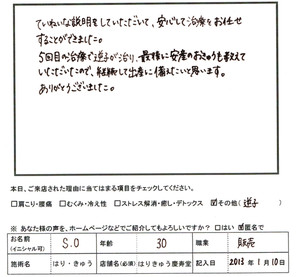 ていねいな説明をしていただいて、安心して治療をお任せ
することができました。
5回目の治療で逆子が治り、最後に安産のおきゅうも教えて
いただいたので、継続して出産に備えたいと思います。
ありがとうございました。
本日、ご来店された理由に当てはまる項目をチェックしてください。
□肩こり・腰痛 □むくみ・冷え性 □ストレス解消・癒し・デトックス ☑その他(逆子)
※ あなた様の声を、ホームページなどでご紹介してもよろしいですか? □はい ☑匿名で
お名前(イニシャル可) S.O 年齢 30 職業 販売
施術名 はり・きゅう 店舗名(必須) はりきゅう慶寿堂 記入日 2013年1月10日